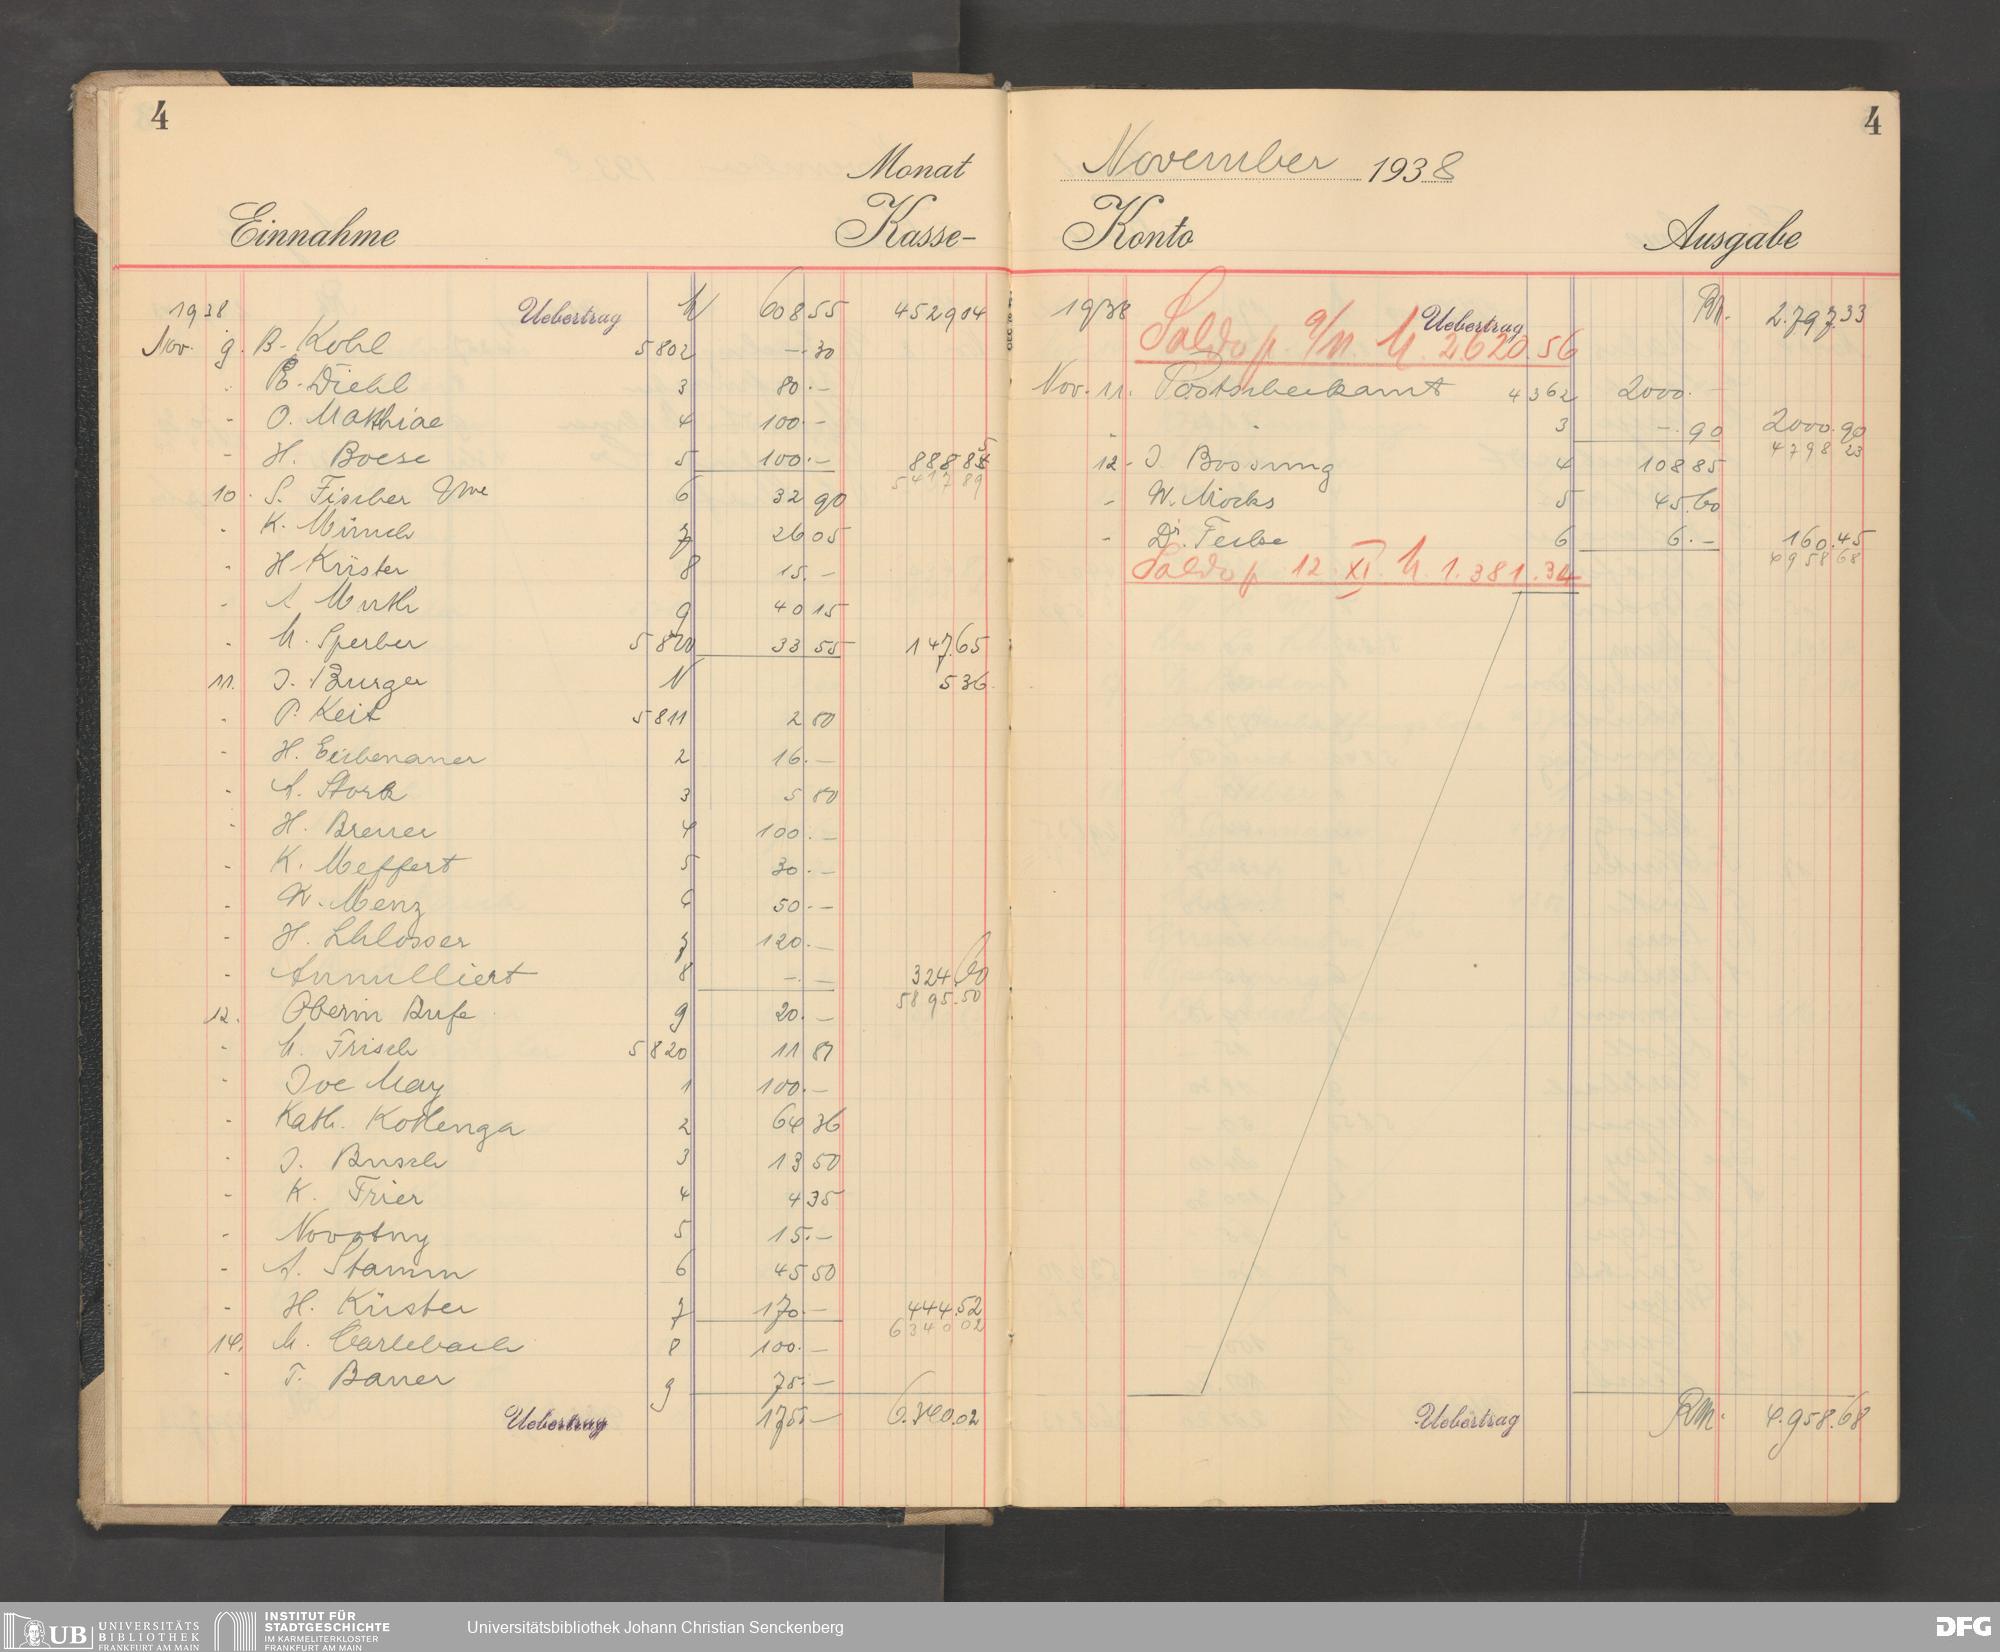 4
Monat
Einnahme Kasse-
1938 Uebertrag 608 55 4529 04
Nov. 9. B. Kohl 5802 —.30
. E. Diehl 3 80.—
- O. Matthiae 4 100.—
- H. Boese 5 100.— 888 85
5417 89
10. S. Fischer Wwe 6 32 90
. K. Münch 7 26 05
- H Küster 8 15.—
- A Muth 9 40 15
. M. Sperber 5 8 33 55 147.65
11. J. Burger 5 36.
. P. Keit 5811 2 80
- H. 2 16.—
- A. Stork 3 5 80
- H. Brerer 4 100.—
- K. Meffert 5 30.—
. K. Menz 6 50.—
- H. Schlosser 7 120.—
- Annulliert 8 —.— 324.60
5895.50
12. Oberin Rufe 9 20.—
- M. Frisch 5820 11 81
- Ive May 1 100.—
- Kath. Kottenga 2 64 36
- J. Busch 3 13 50
- K. Frier 4 4 35
- Novotny 5 15.—
- A. Stamm 6 45 50
- H. Küster 7 170.— 444.52
6340 02
14. M. Carlebach 8 100.—
- T. Bauer 9 75.—
Uebertrag 175.— 6.340.02
4
November 1938
Konto Ausgabe
1938 Uebertrag RM. 2.797.33
Saldo p. 9/11. M. 2620.56
Nov. 11. Postscheckamt 4362 2000.—
3 —.90 2000.90
4798 23
12. J. Bossung 4 108 85
- W. Möcks 5 45.60
- Dr. 6 6.— 160.45
4958 68
Saldo p 12. XI. M. 1.381.34
Uebertrag RM. 4.958.68
UB UNIVERSITÄTS
BIBLIOTHEK
FRANKFURT AM MAIN
INSTITUT FÜR
STADTGESCHICHTE
IM KARMELITERKLOSTER
FRANKFURT AM MAIN
Universitätsbibliothek Johann Christian Senckenberg
DFG